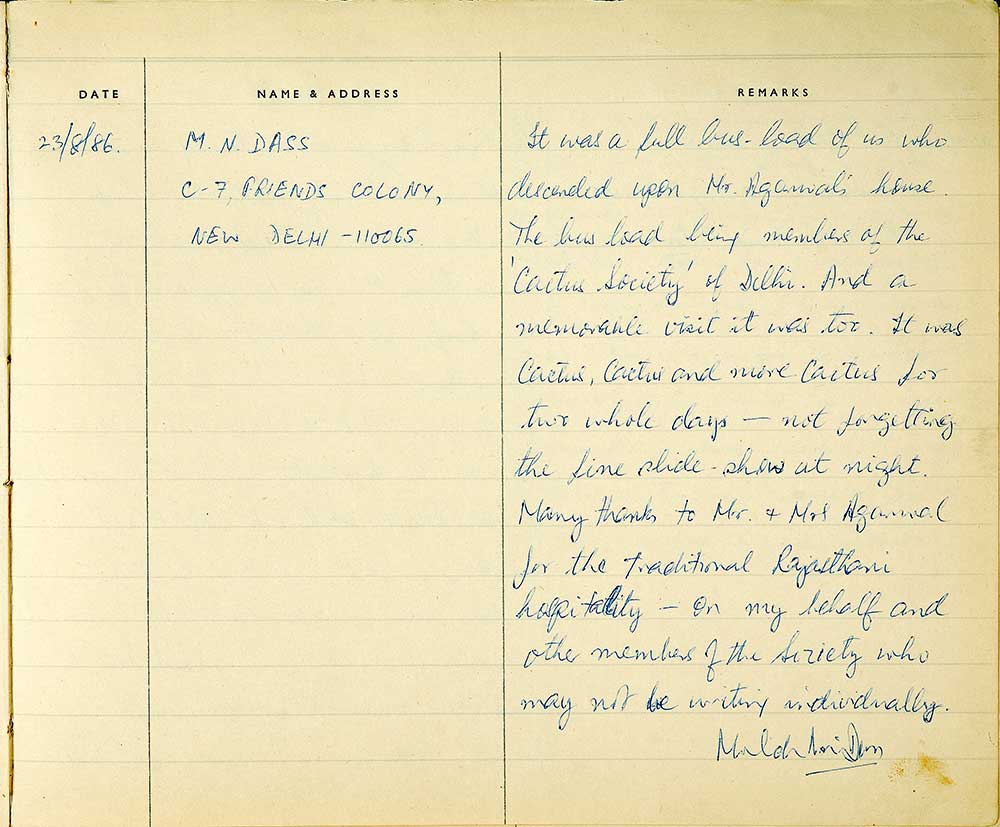 DATE
NAME & ADDRESS
REMARKS
23/8/86.
M. N. DASS
C-7, FRIENDS COLONY,
NEW DELHI - 110065.
It was a full bus-load of us who
descended upon Mr. Agarwal's house.
The bus load being members of the
'Cactus Society' of Delhi. And a
memorable visit it was too. It was
Cactus, Cactus and more Cactus for
two whole days — not forgetting
the fine slide-show at night.
Many thanks to Mr. & Mrs Agarwal
for the traditional Rajasthani
hospitality — on my behalf and
other members of the Society who
may not be writing individually.